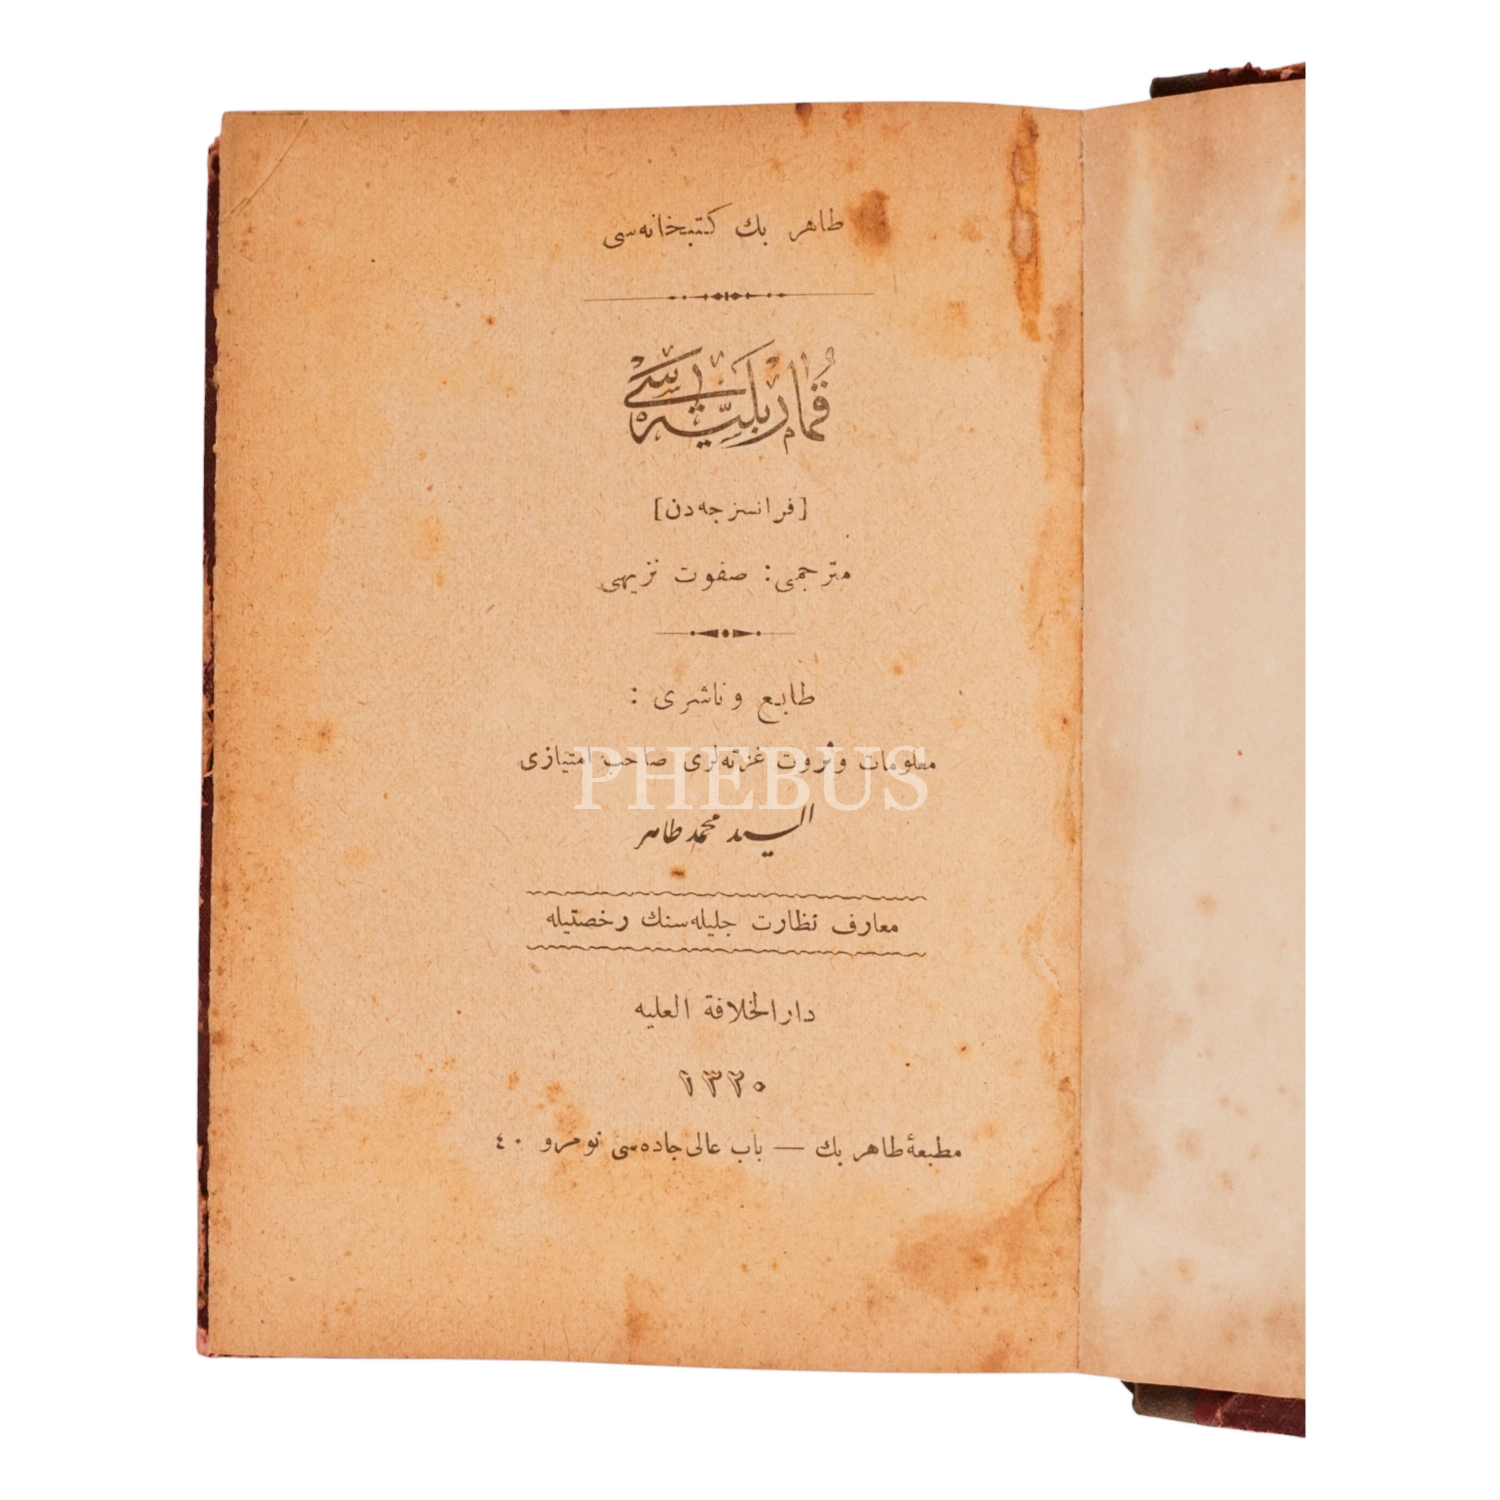 طاهر بك كتبخانه‌سى
قمار بليه‌سى
[فرانسزجه‌دن]
مترجمى: صفوت نزيهى
طابع وناشرى :
معلومات وثروت غزته‌لرى صاحب امتيازى
PHEBUS
السيد محمد طاهر
معارف نظارت جليله‌سنك رخصتيله
دار الخلافة العليه
١٣٢٠
مطبعۀ طاهر بك — باب عالى جاده‌سى نومرو ٤٠